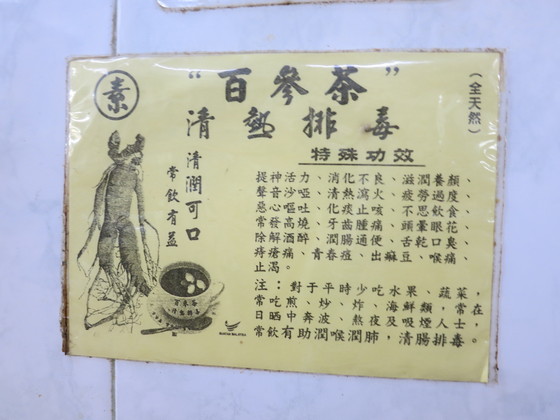 素
"百參茶"
(全天然)
清熱排毒
清潤可口
常飲有益
特殊功效
提神活力、消化不良、滋潤養顏、
聲音沙啞、清熱瀉火、疲勞過度、
惡心嘔吐、化痰止咳、不思飲食、
常發高燒、牙齒腫痛、頭暈眼花、
除解酒醉、潤腸通便、舌乾口臭、
痔瘡痛、青春痘、出痲豆、喉痛、
止渴。
注：對于平時少吃水果、蔬菜，
常吃煎炒、炸、海鮮類，在
日晒中奔波熬夜及吸煙人士，
常飲有助潤喉潤肺，清腸排毒。
百參茶